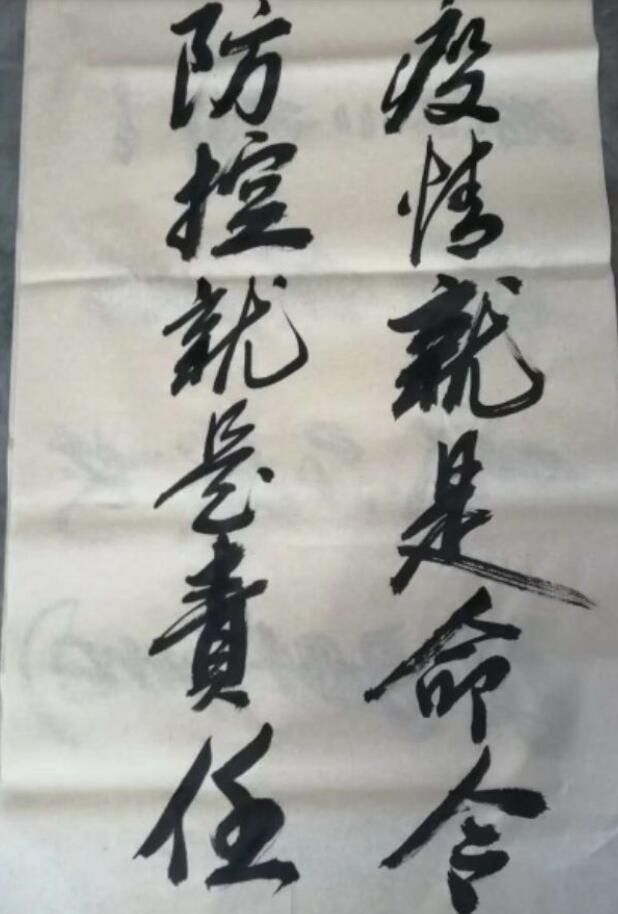 疫情就是命令
防控就是責任